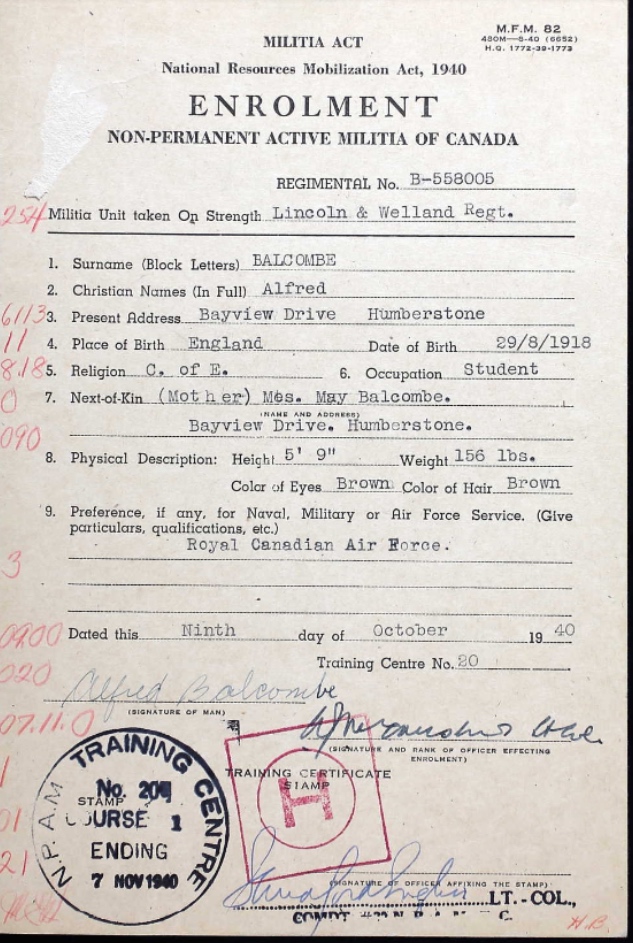 M.F.M. 82
480M—8-40 (6652)
H.Q. 1772-39-1773
MILITIA ACT
National Resources Mobilization Act, 1940
ENROLMENT
NON-PERMANENT ACTIVE MILITIA OF CANADA
REGIMENTAL No. B-558005
254
Militia Unit taken On Strength Lincoln & Welland Regt.
1. Surname (Block Letters) BALCOMBE
2. Christian Names (In Full) Alfred
6113
3. Present Address Bayview Drive Humberstone
11
4. Place of Birth England Date of Birth 29/8/1918
8.18
5. Religion C. of E. 6. Occupation Student
0
7. Next-of-Kin (Mother) Mes. May Balcombe.
(NAME AND ADDRESS)
090
Bayview Drive. Humberstone.
8. Physical Description: Height 5' 9" Weight 156 lbs.
Color of Eyes Brown Color of Hair Brown
9. Preference, if any, for Naval, Military or Air Force Service. (Give
particulars, qualifications, etc.)
Royal Canadian Air Force.
3
0900
Dated this Ninth day of October 19 40
Training Centre No. 20
020
Alfred Balcombe
(SIGNATURE OF MAN)
07.11.0
(SIGNATURE AND RANK OF OFFICER EFFECTING
ENROLMENT)
TRAINING CERTIFICATE
STAMP
H
N.P.A.M. TRAINING CENTRE
No. 20
STAMP
COURSE 1
ENDING
7 NOV 1940
1
01
21
(SIGNATURE OF OFFICER AFFIXING THE STAMP)
LT.-COL.,
H.B.